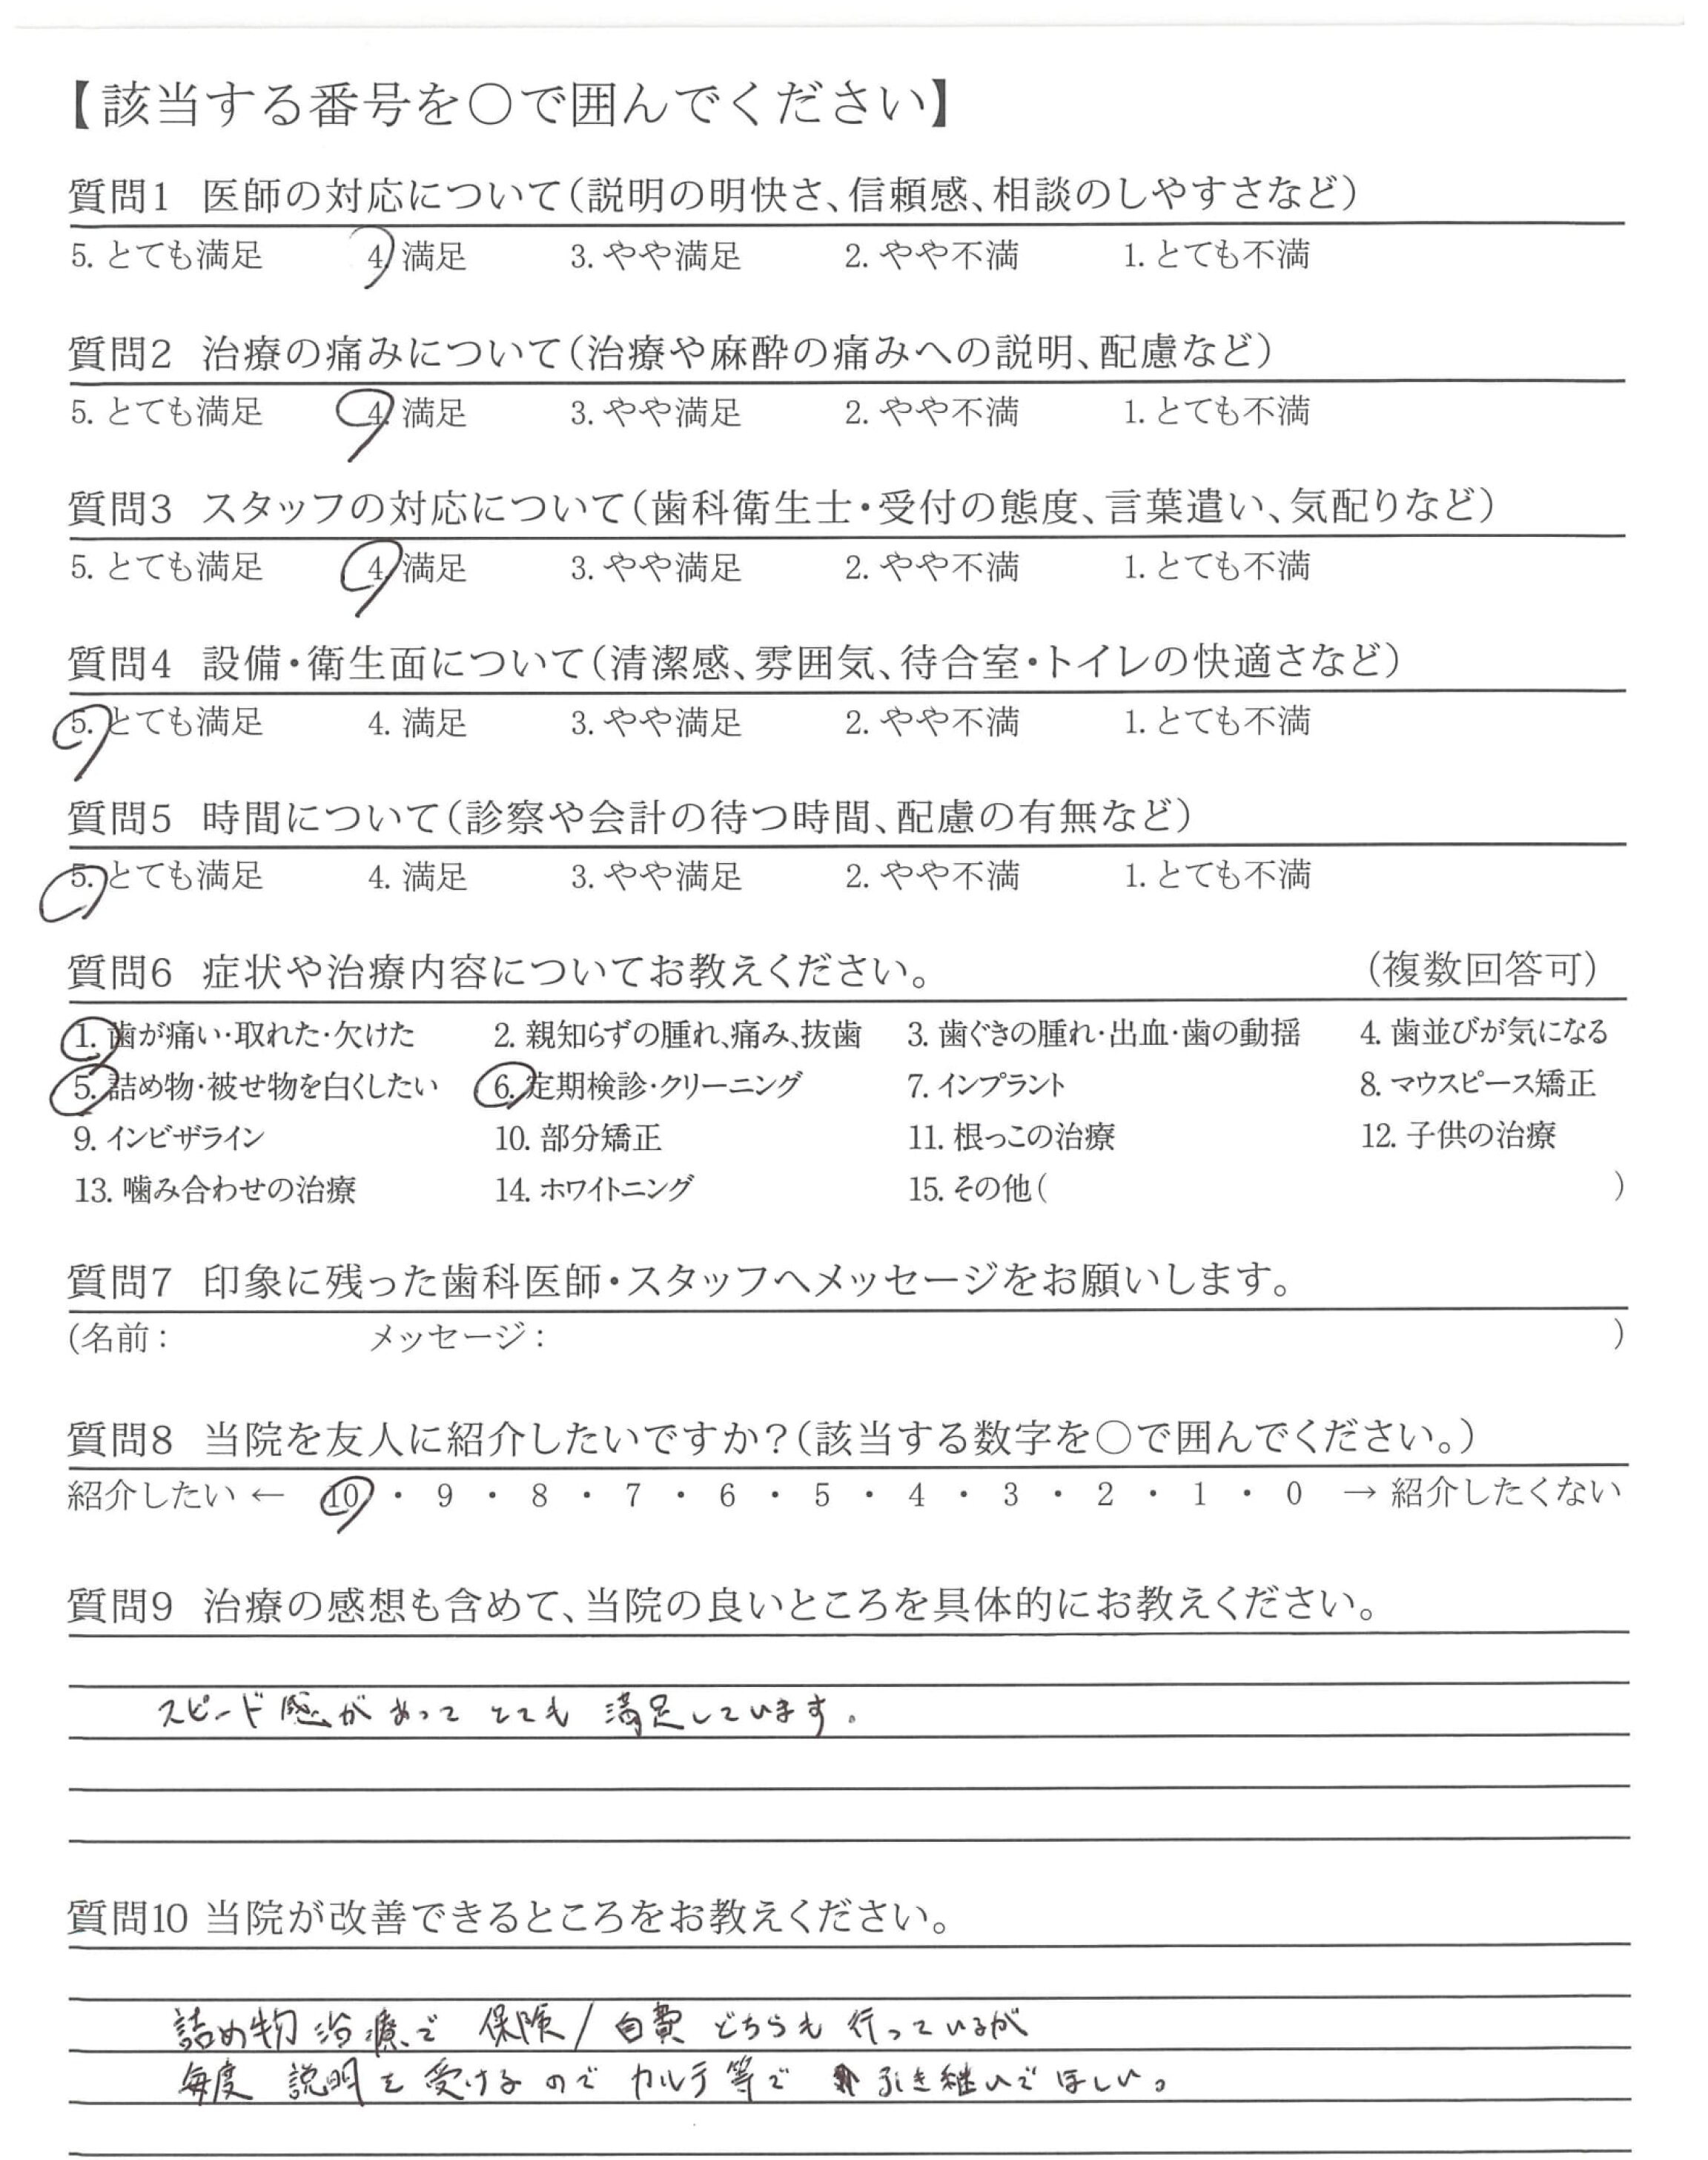 【該当する番号を○で囲んでください】
質問1 医師の対応について(説明の明快さ、信頼感、相談のしやすさなど)
5. とても満足 4. 満足 3. やや満足 2. やや不満 1. とても不満
質問2 治療の痛みについて(治療や麻酔の痛みへの説明、配慮など)
5. とても満足 4. 満足 3. やや満足 2. やや不満 1. とても不満
質問3 スタッフの対応について(歯科衛生士・受付の態度、言葉遣い、気配りなど)
5. とても満足 4. 満足 3. やや満足 2. やや不満 1. とても不満
質問4 設備・衛生面について(清潔感、雰囲気、待合室・トイレの快適さなど)
5. とても満足 4. 満足 3. やや満足 2. やや不満 1. とても不満
質問5 時間について(診察や会計の待つ時間、配慮の有無など)
5. とても満足 4. 満足 3. やや満足 2. やや不満 1. とても不満
質問6 症状や治療内容についてお教えください。 (複数回答可)
1. 歯が痛い・取れた・欠けた 2. 親知らずの腫れ、痛み、抜歯 3. 歯ぐきの腫れ・出血・歯の動揺 4. 歯並びが気になる
5. 詰め物・被せ物を白くしたい 6. 定期検診・クリーニング 7. インプラント 8. マウスピース矯正
9. インビザライン 10. 部分矯正 11. 根っこの治療 12. 子供の治療
13. 噛み合わせの治療 14. ホワイトニング 15. その他( )
質問7 印象に残った歯科医師・スタッフへメッセージをお願いします。
(名前: メッセージ: )
質問8 当院を友人に紹介したいですか?(該当する数字を○で囲んでください。)
紹介したい ← 10 ・ 9 ・ 8 ・ 7 ・ 6 ・ 5 ・ 4 ・ 3 ・ 2 ・ 1 ・ 0 → 紹介したくない
質問9 治療の感想も含めて、当院の良いところを具体的にお教えください。
スピード感があってとても満足しています。
質問10 当院が改善できるところをお教えください。
詰め物治療で 保険/自費 どちらも行っているが
毎度 説明を受けるので カルテ等で 引き継いでほしい。